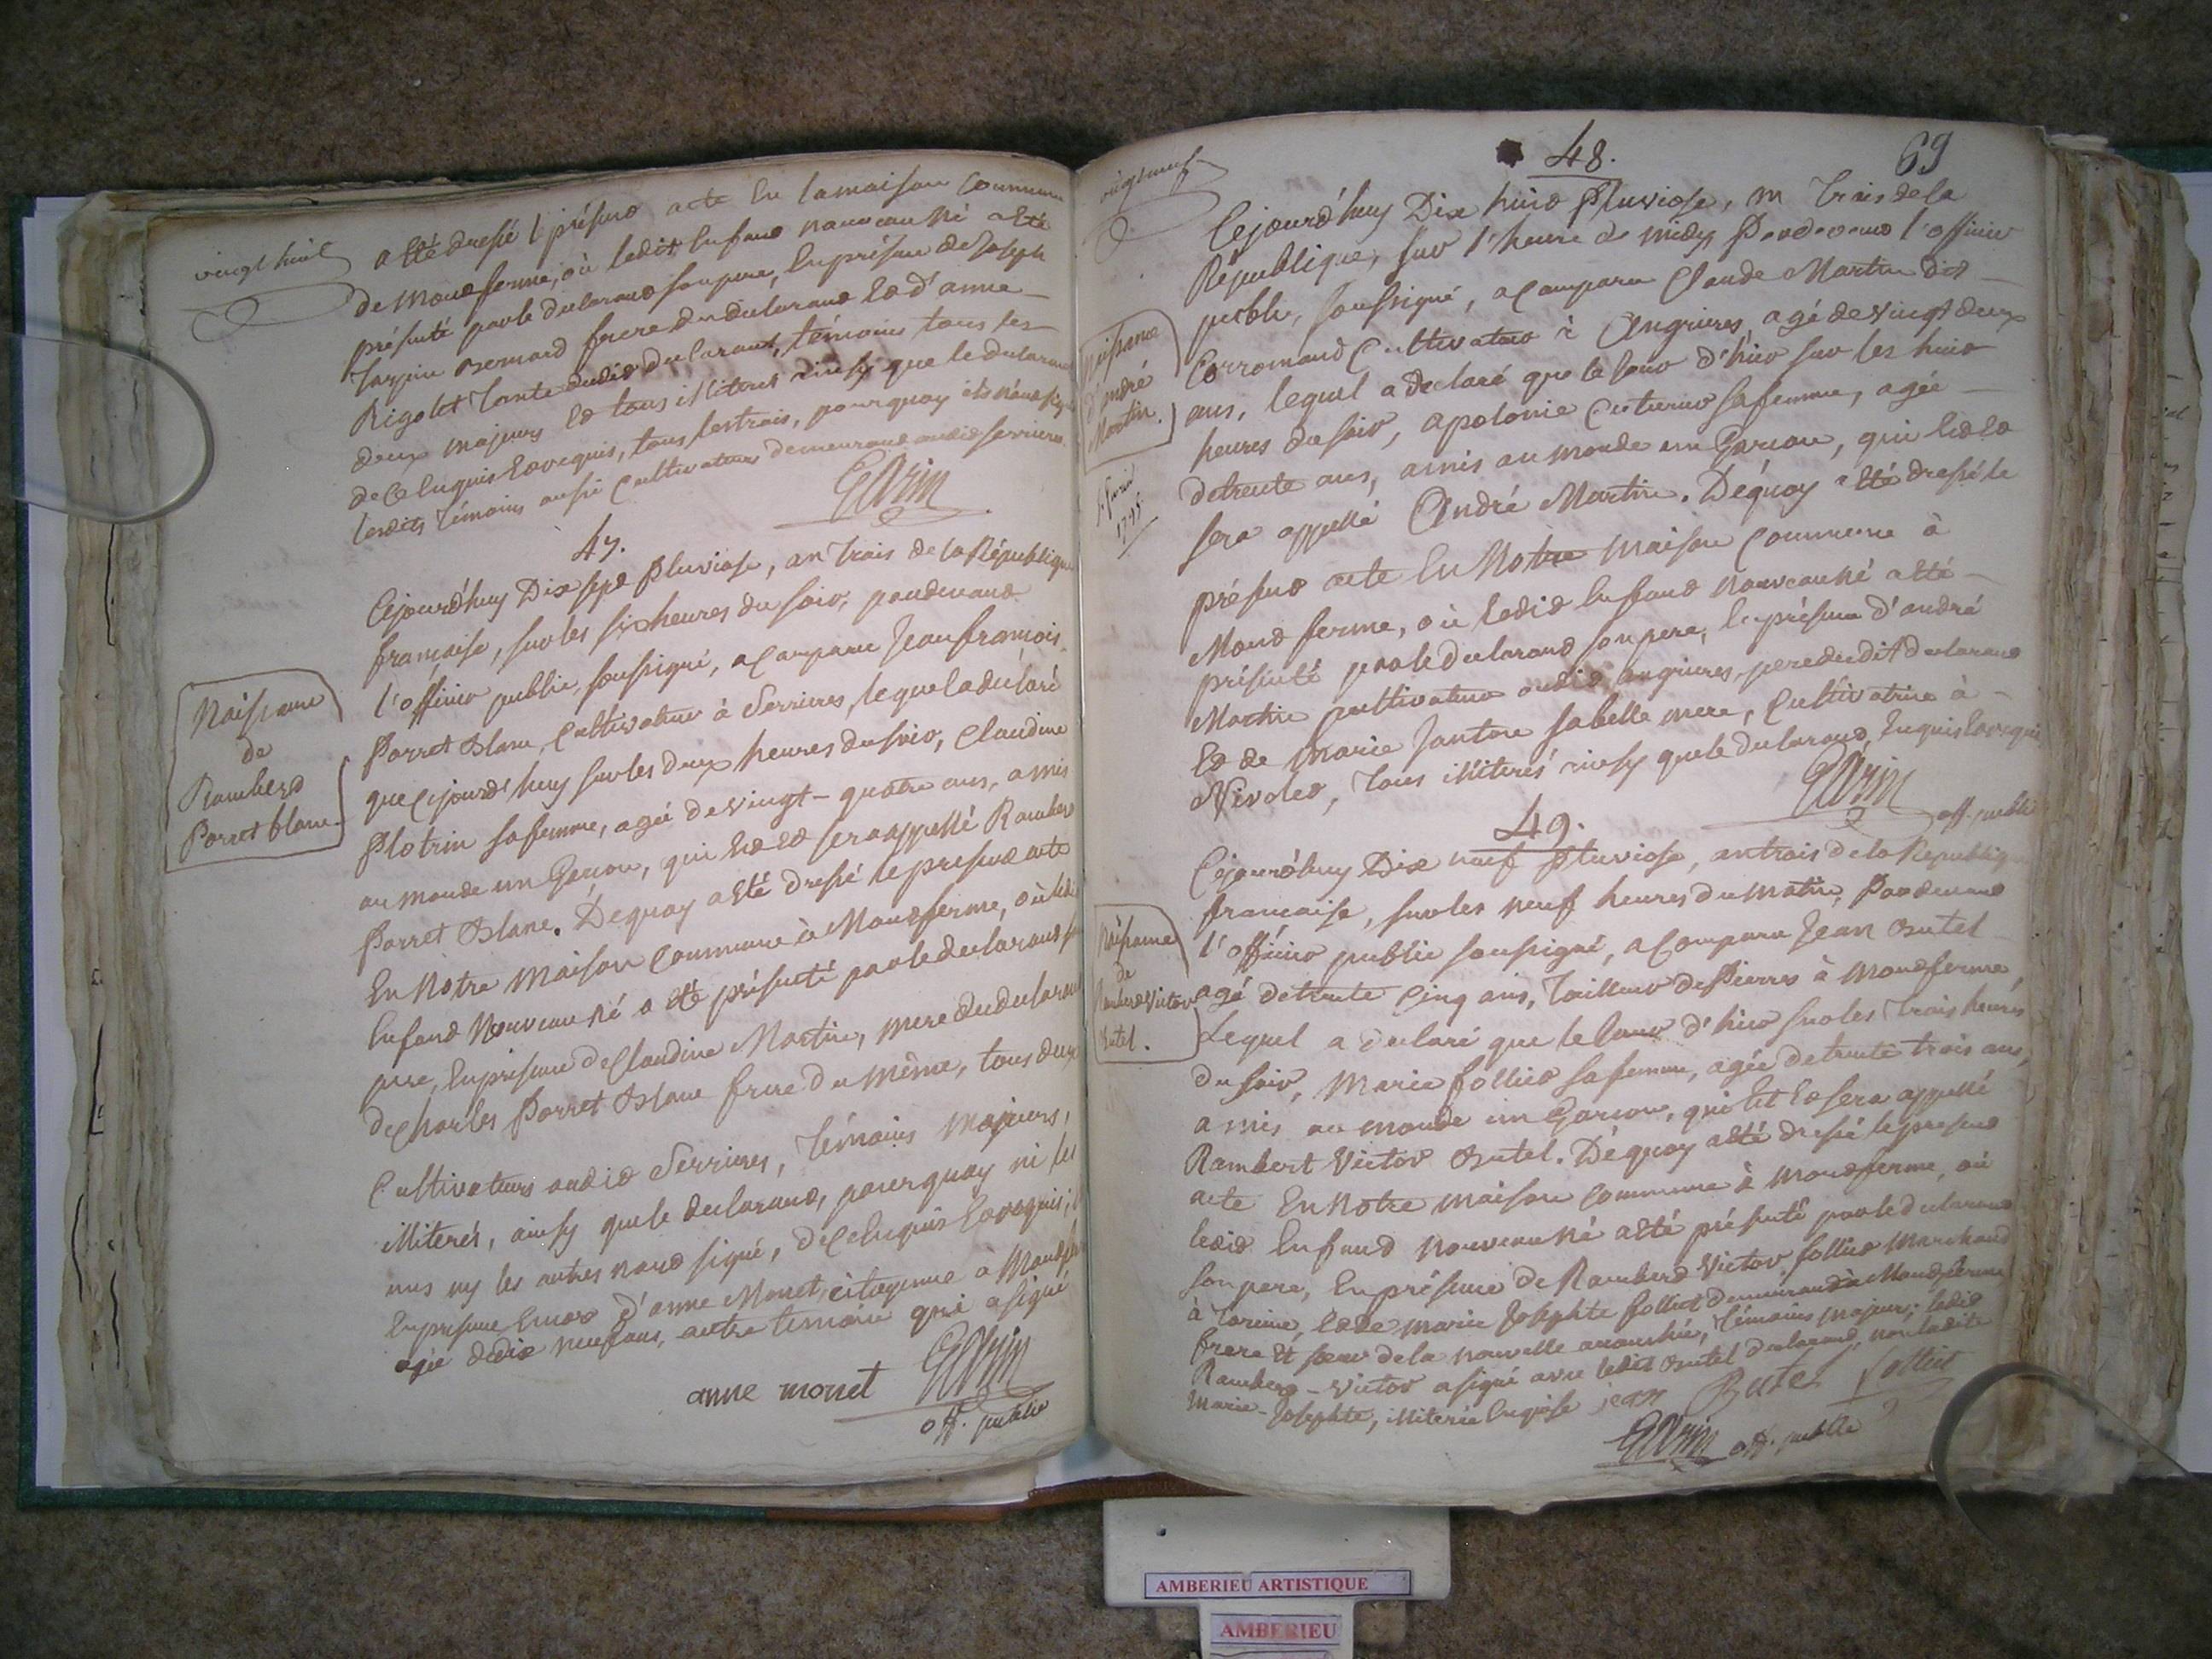 vingt huit
a été dressé le présent acte En la maison Commune
de Montferme, où ledit Enfant nouveau né a été
présenté par le déclarant son pere, En présence de Joseph
Bernard frere du déclarant Et d'anne
Rigolet Tante dudit déclarant, témoins tous les
deux majeurs Et tous illiterés ainsy que le déclarant
de Ce Enquis Et requis, tous les trois, pourquoy ils n'ont signé
lesdits témoins aussi Cultivateurs demeurant audit Serrieres
47.
Naissance
de
Rambert
Porret blanc
Cejourd'huy Dix sept Pluviose, an trois de la République
française, sur les six heures du soir, pardevant
l'officier public, soussigné, a Comparu Jean françois
Porret Blanc, Cultivateur à Serrieres, lequel a déclaré
que Cejourd'huy sur les deux heures du soir, Claudine
Plotrin sa femme, agée de vingt-quatre ans, a mis
au monde un Garcon, qui Est Et sera appellé Rambert
Porret Blanc. Déquoy a été dressé le présent acte
En Notre Maison Commune à Montferme, où ledit
Enfant Nouveau né a été présenté par le déclarant son
pere, En présence de Claudine Martin, mere du déclarant
de Charles Porret Blanc frere du même, tous deux
Cultivateurs audit Serrieres, Témoins Majeurs,
illiterés, ainsy que le déclarant, pourquoy ni les
uns ny les autres n'ont signé, de Ce Enquis Et requis;
En présence Encor d'anne Monet, citoyenne à Montferme
agée de dix neuf ans, autre temoin qui a signé
anne monet
off. public
48.
69
vingt neuf
Naissance
d'André
Martin.
février
1795
Cejourd'huy Dix huit Pluviose, an Trois de la
République, sur l'heure de midy Pardevant l'officier
public, soussigné, a Comparu Claude Martin dit
Corromand Cultivateur à Angrieres, agé de vingt deux
ans, lequel a déclaré que le jour d'hier sur les huit
heures du soir, apolonie Couturier sa femme, agée
de trente ans, a mis au monde un Garcon, qui Est Et
sera appellé André Martin. Déquoy a été dressé le
présent acte En Notre Maison Commune à
Montferme, où ledit Enfant nouveau né a été
présenté par le déclarant son pere, En présence d'andré
Martin cultivateur audit angrieres, pere dudit déclarant
Et de Marie Janton sa belle mere, Cultivatrice à
Nivolet, Tous illiterés ainsy que le déclarant, Enquis Et requis
off. public
49.
Naissance
de
Rambert Victor
Butel.
Cejourd'huy Dix neuf Pluviose, an trois de la République
francaise, sur les neuf heures du matin, Pardevant
l'officier public soussigné, a Comparu Jean Butel
agé de trente Cinq ans, Tailleur de Pierres à Montferme,
Lequel a déclaré que le jour d'hier sur les Trois heures
du soir, Marie folliet sa femme, agée de trente trois ans,
a mis au monde un Garcon, qui Est Et sera appellé
Rambert Victor Butel. Déquoy a été dressé le présent
acte En Notre Maison Commune à Montferme, où
ledit Enfant nouveau né a été présenté par le déclarant
son pere, En présence de Rambert Victor folliet Marchand
à Torcieu, Et de Marie Josephte folliet demeurant à Montferme
frere Et soeur de la nouvelle accouchée, Témoins majeurs; ledit
Rambert-Victor a signé avec ledit Butel déclarant, non ladite
Marie-Josephte, illiterée Enquise
jean Butel folliet
off. public
AMBERIEU ARTISTIQUE
AMBERIEU